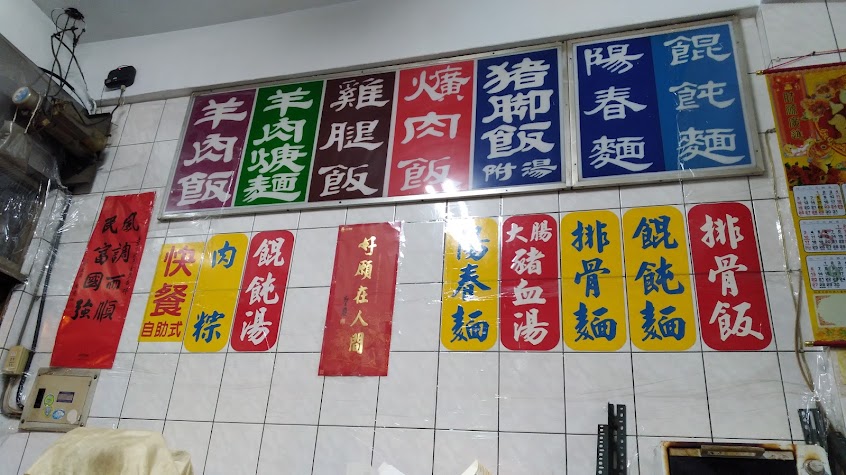 羊肉飯
羊肉焿麵
雞腿飯
爌肉飯
猪脚飯
附湯
陽春麵
餛飩麵
風調雨順
民富國強
快餐
自助式
肉粽
餛飩湯
好願在人間
陽春麵
大腸
豬血湯
排骨麵
餛飩麵
排骨飯